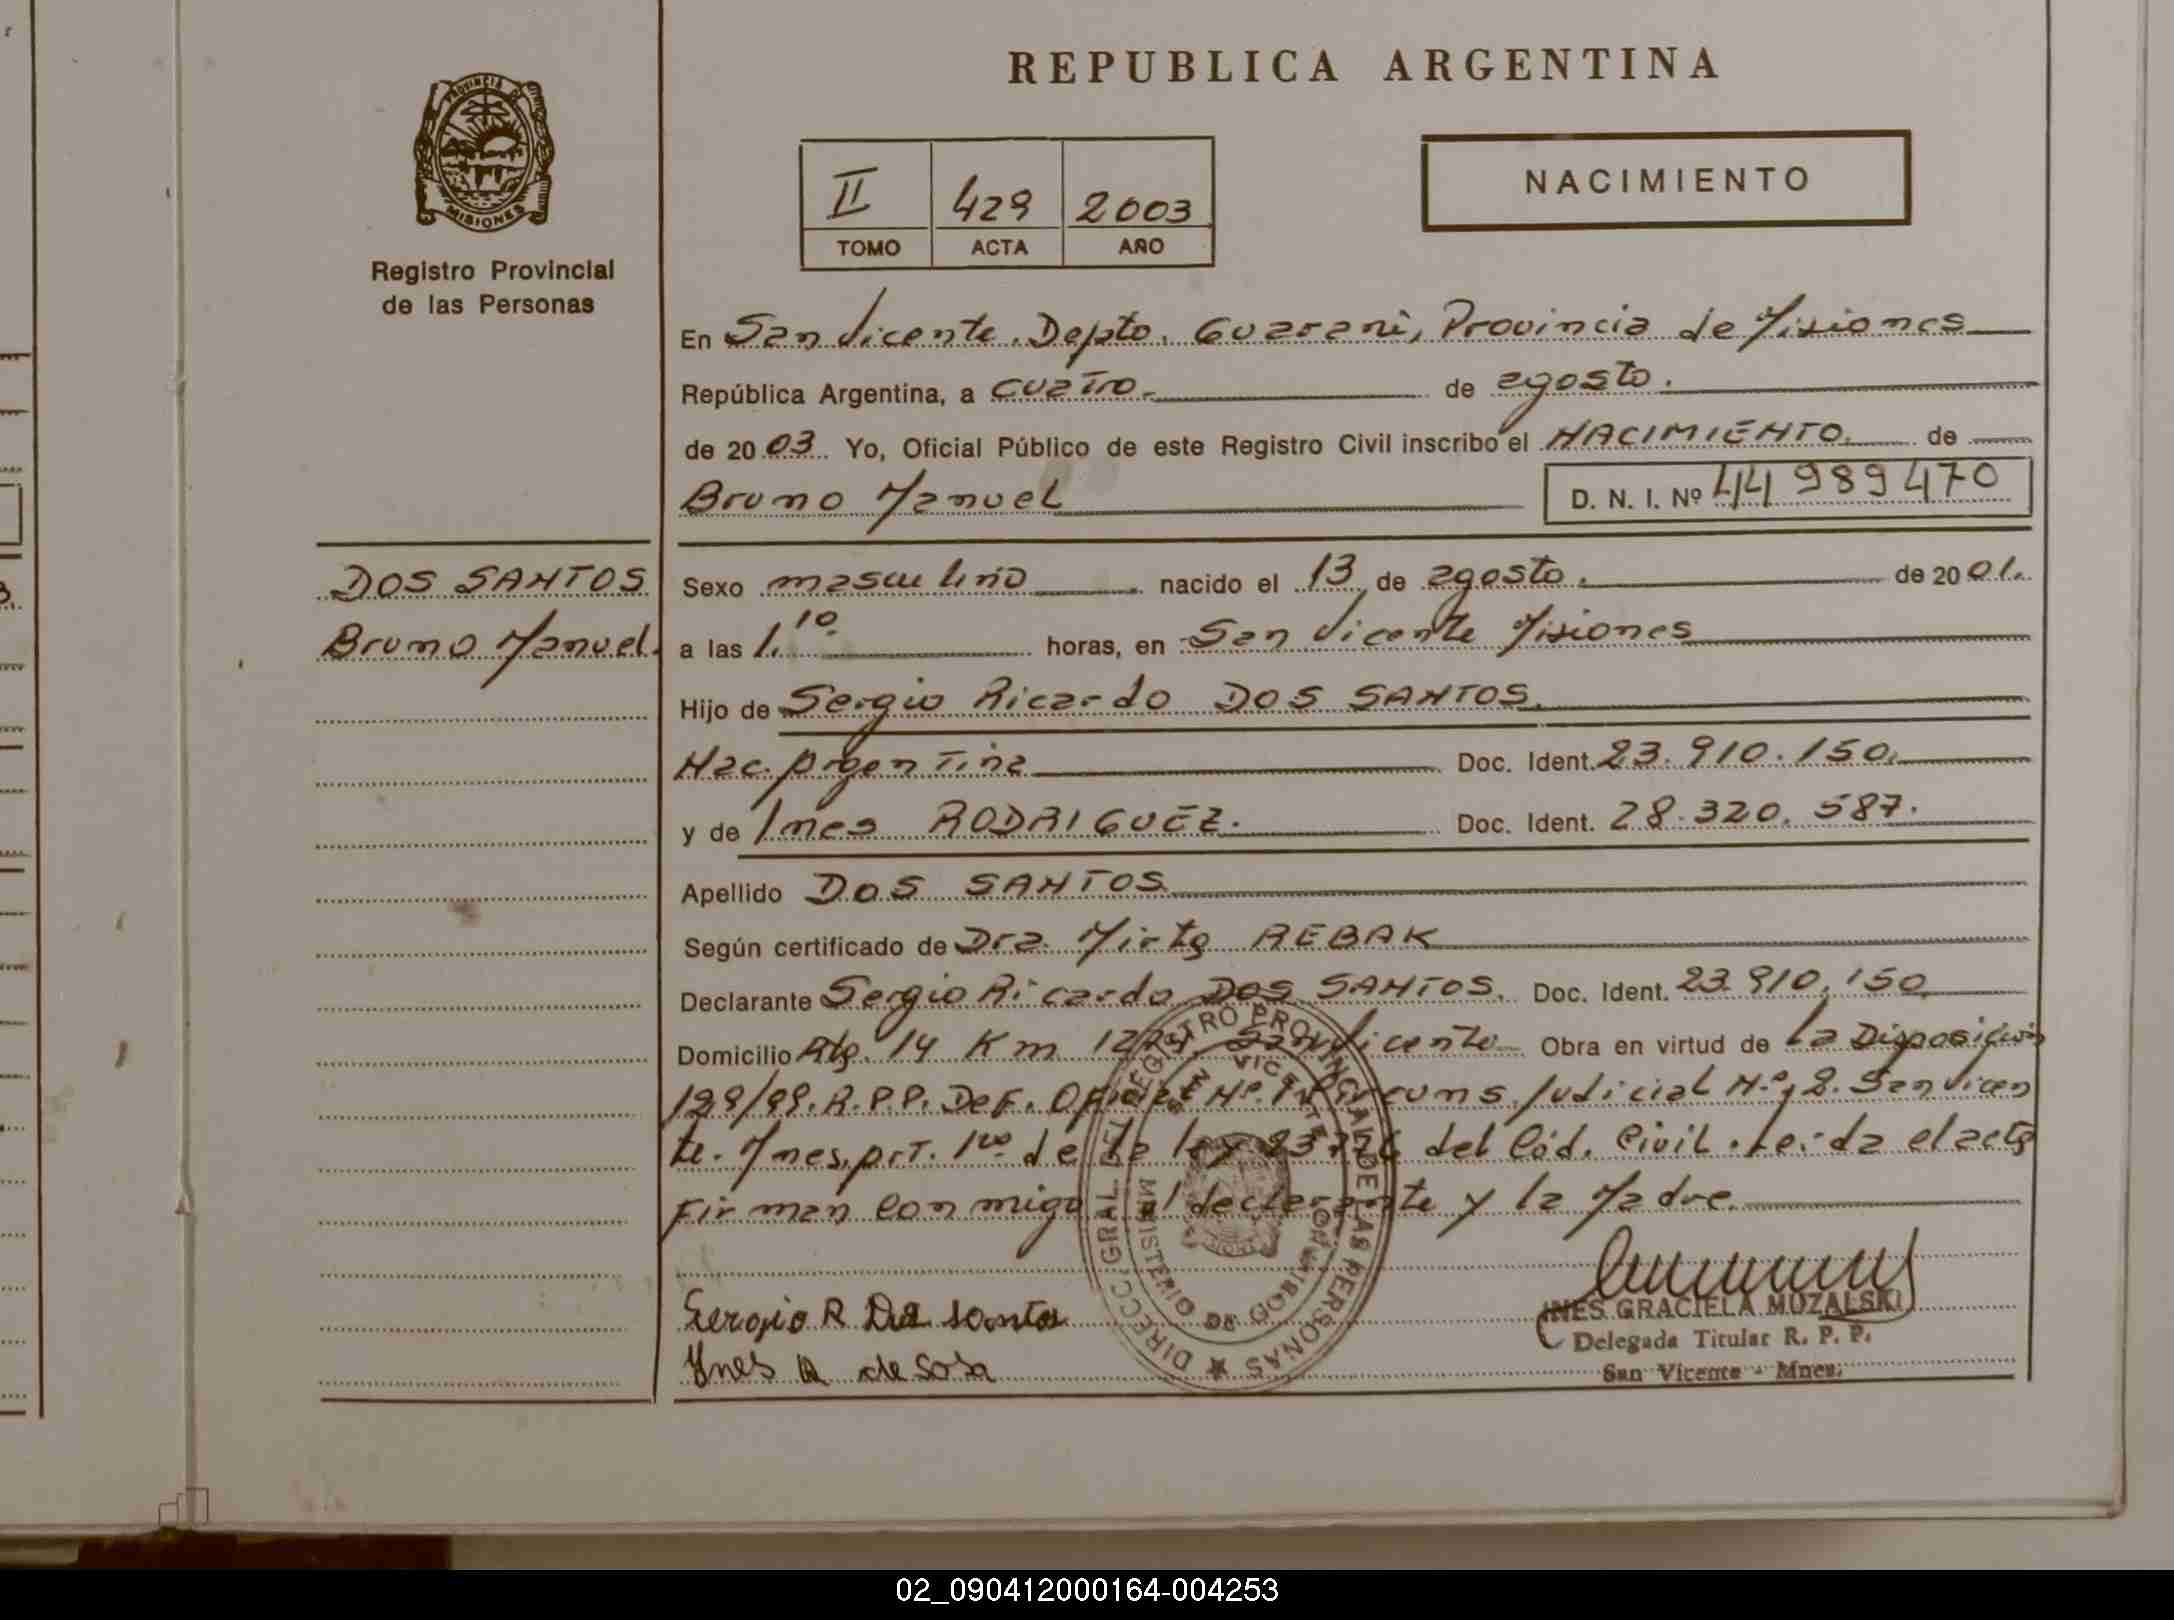 PROVINCIA DE
MISIONES
Registro Provincial
de las Personas
REPUBLICA ARGENTINA
II 429 2003
TOMO ACTA AÑO
NACIMIENTO
En San Vicente. Depto. Guarani, Provincia de Misiones
República Argentina, a cuatro. de agosto.
de 2003. Yo, Oficial Público de este Registro Civil inscribo el NACIMIENTO. de
Bruno Manuel D. N. I. Nº 44 989 470
DOS SANTOS
Bruno Manuel.
Sexo masculino nacido el 13 de agosto. de 2001.
a las 1.10 horas, en San Vicente Misiones
Hijo de Sergio Ricardo DOS SANTOS.
Nac. Argentina Doc. Ident. 23.910.150.
y de Ines RODRIGUEZ. Doc. Ident. 28.320.587.
Apellido DOS SANTOS
Según certificado de Dra. Mirta REBAK
Declarante Sergio Ricardo DOS SANTOS. Doc. Ident. 23.910.150
Domicilio Rta. 14 Km San Vicente Obra en virtud de la Disposición
129/99. R.P.P. Def. Oficial Nº. 1 Circuns. Judicial Nº. 2. San Vicen
te. Mnes. Art. 1ro. de la ley del Cód. Civil. Leida el acta
Firman con migo el declarante y la Madre.
DIRECC. GRAL. DEL REGISTRO PROVINCIAL DE LAS PERSONAS
SAN VICENTE
MINISTERIO DE GOBIERNO
Sergio R Dos santos
Ynes R de Sosa
INES GRACIELA MUZALSKI
Delegada Titular R. P. P.
San Vicente - Mnes.
02_090412000164-004253